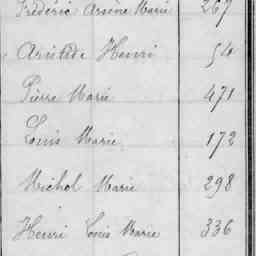 Frédéric Arsène Marie 267
Aristide Henri 54
Pierre Marie 471
Louis Marie 172
Michel Marie 298
Henri Louis Marie 336